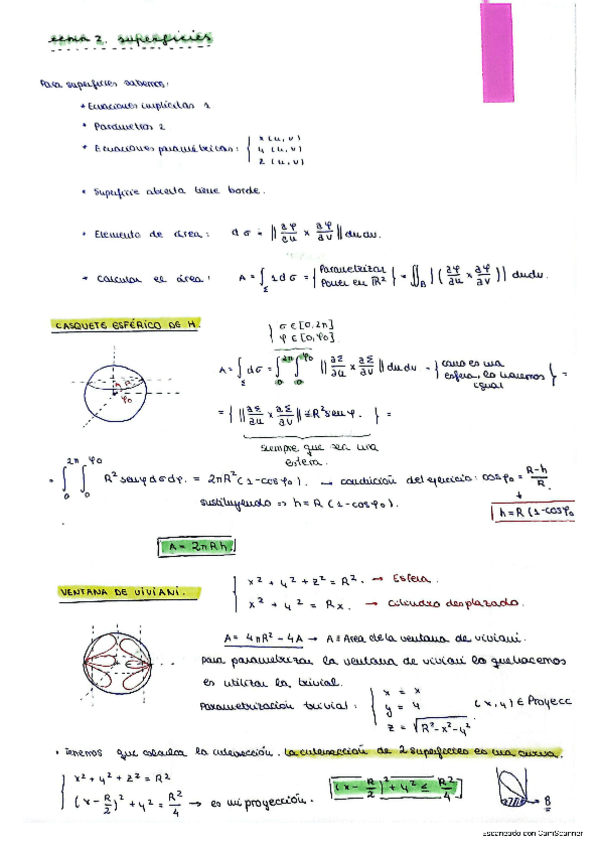 tema 2. superficies
Para superficies sabemos:
* Ecuaciones implícitas 1
* Parámetros 2
* Ecuaciones paramétricas: { x(u,v)
y(u,v)
z(u,v)
* Superficie abierta tiene borde.
* Elemento de área: dσ = ||∂φ/∂u × ∂φ/∂v|| du dv.
* Calcular el área: A = ∫_Σ 1dσ = {Parametrizar Poner en ℝ²} = ∬_B ||(∂φ/∂u × ∂φ/∂v)|| du dv.
CASQUETE ESFÉRICO DE H.
{ σ ∈ [0,2π]
φ ∈ [0,φ₀]
A = ∫_Σ dσ = ∫₀^2π ∫₀^φ₀ ||∂Σ/∂u × ∂Σ/∂v|| du dv = {como es una esfera, lo haremos igual} =
R
φ₀
= { ||∂Σ/∂u × ∂Σ/∂v|| = R² sen φ. } =
siempre que sea una esfera.
= ∫₀^2π ∫₀^φ₀ R² sen φ dσ dφ. = 2πR²(1-cosφ₀). → condición del ejercicio: cosφ₀ = R-h/R
sustituyendo ⇒ h = R(1-cosφ₀).
h = R(1-cosφ₀
A = 2πRh.
VENTANA DE VIVIANI.
{ x² + y² + z² = R². → Esfera.
x² + y² = Rx. → Cilindro desplazado.
A = 4πR² - 4A → A ≡ Area de la ventana de viviani.
Para parametrizar la ventana de viviani lo que hacemos
es utilizar la trivial.
Parametrización trivial: { x = x
y = y
z = √R²-x²-y²
(x,y) ∈ Proyecc
* Tenemos que calcular la intersección. La intersección de 2 superficies es una curva.
{ x² + y² + z² = R²
(x - R/2)² + y² = R²/4 → es mi proyección.
(x - R/2)² + y² ≤ R²/4
B
Escaneado con CamScanner